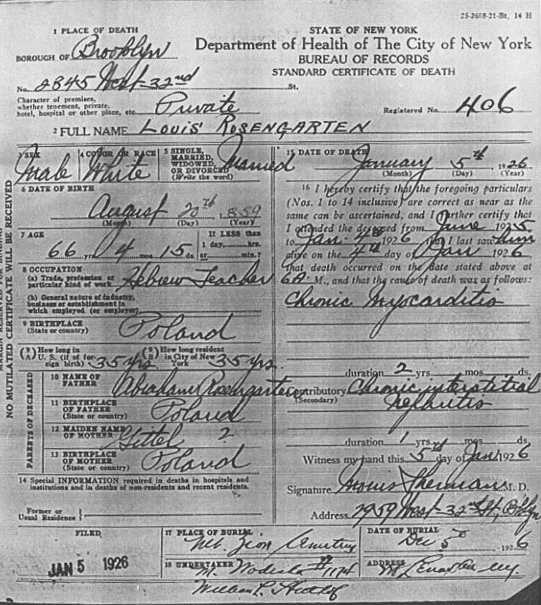 25-2608-21-Bt. 14 H
1 PLACE OF DEATH
STATE OF NEW YORK
Department of Health of The City of New York
BUREAU OF RECORDS
STANDARD CERTIFICATE OF DEATH
BOROUGH OF Brooklyn
No. 2845 West 32nd St.
Character of premises,
whether tenement, private,
hotel, hospital or other place, etc. Private
Registered No. 406
2 FULL NAME Louis Rosengarten
3 SEX Male
4 COLOR OR RACE White
5 SINGLE, MARRIED, WIDOWED, OR DIVORCED (Write the word) Married
6 DATE OF BIRTH
August 20th 1859
(Month) (Day) (Year)
7 AGE
66 yrs 4 mos 15 ds
If LESS than
1 day, hrs.
or min.?
8 OCCUPATION
(a) Trade, profession or
particular kind of work Hebrew Teacher
(b) General nature of industry,
business or establishment in
which employed (or employer)
9 BIRTHPLACE
(State or country) Poland
(A) How long in
U. S. (if of foreign birth) 35 yrs.
(B) How long resident
in City of New York 35 yrs.
NO MUTILATED CERTIFICATE WILL BE RECEIVED
PARENTS OF DECEASED
10 NAME OF
FATHER Abraham Rosengarten
11 BIRTHPLACE
OF FATHER
(State or country) Poland
12 MAIDEN NAME
OF MOTHER Gittel ?
13 BIRTHPLACE
OF MOTHER
(State or country) Poland
14 Special INFORMATION required in deaths in hospitals and
institutions and in deaths of non-residents and recent residents.
Former or
Usual Residence
15 DATE OF DEATH
January 5th 1926
(Month) (Day) (Year)
16 I hereby certify that the foregoing particulars
(Nos. 1 to 14 inclusive) are correct as near as the
same can be ascertained, and I further certify that
I attended the deceased from June 1925
to Jan. 4th 1926, that I last saw him
alive on the 4th day of Jan 1926
that death occurred on the date stated above at
6A M., and that the cause of death was as follows:
Chronic Myocarditis
duration 2 yrs. mos. ds.
Contributory Chronic interstitial
(Secondary) Nephritis
duration 1 yrs. mos. ds.
Witness my hand this 5th day of Jan 1926
Signature M. D.
Address 2959 West 32 St, B'klyn
FILED
JAN 5 1926
17 PLACE OF BURIAL
Mt. Zion
DATE OF BURIAL
5 1926
18 UNDERTAKER
ADDRESS